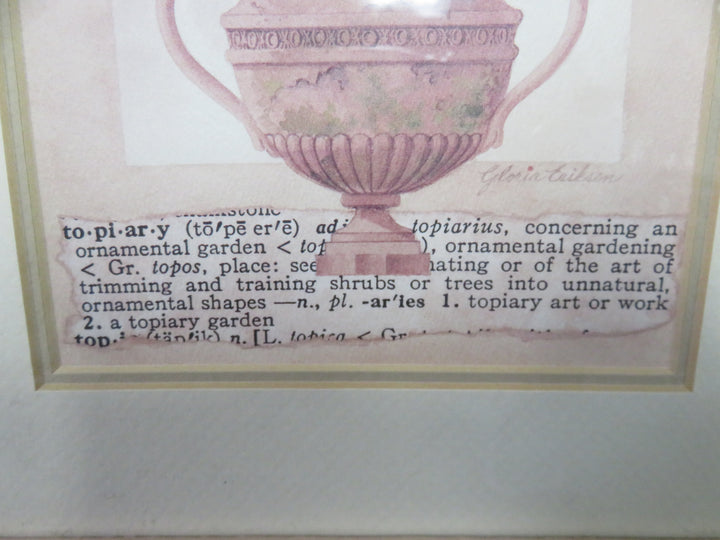 Gloria Eriksen
to·pi·ar·y (tō′pē er′ē) ad topiarius, concerning an
ornamental garden < to ), ornamental gardening
< Gr. topos, place: see nating or of the art of
trimming and training shrubs or trees into unnatural,
ornamental shapes —n., pl. -ar′ies 1. topiary art or work
2. a topiary garden
top·i (täp′ik) n. [L. topica < Gr